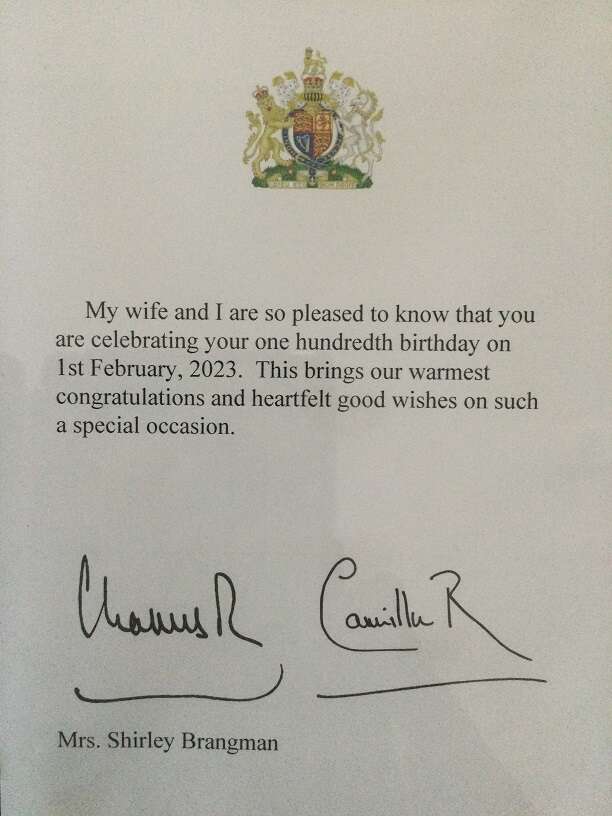 My wife and I are so pleased to know that you
are celebrating your one hundredth birthday on
1st February, 2023. This brings our warmest
congratulations and heartfelt good wishes on such
a special occasion.
Charles R Camilla R
Mrs. Shirley Brangman